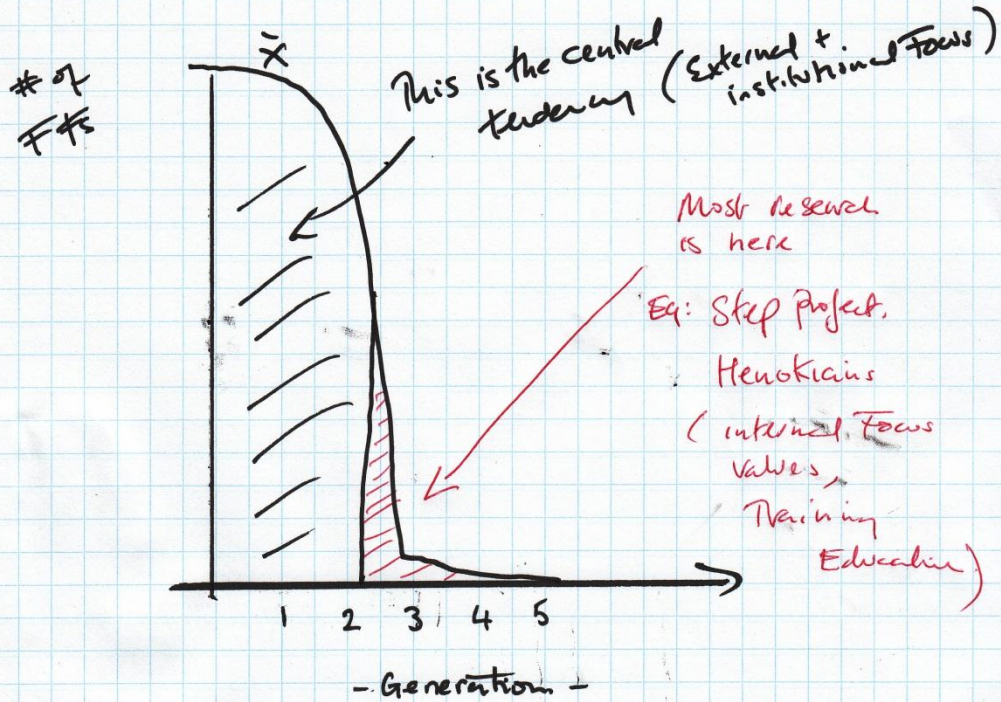 # of
FFs
x̄
This is the central
tendency (External +
institutional Focus)
Most research
is here
Eg: Step Project.
Henokiens
(internal Focus
values,
Training
Education)
1 2 3 4 5
- Generation -